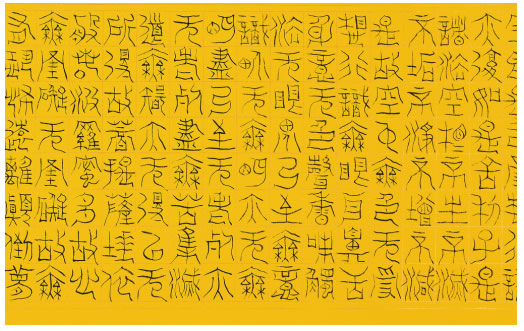 亦復如是舍利子是
諸法空相不生不滅
不垢不淨不增不減
是故空中無色無受
想行識無眼耳鼻舌
身意無色聲香味觸
法無眼界乃至無意
識界無無明亦無無
明盡乃至無老死亦
無老死盡無苦集滅
道無智亦無得以無
所得故菩提薩埵依
般若波羅蜜多故心
無罣礙無罣礙故無
有恐怖遠離顛倒夢